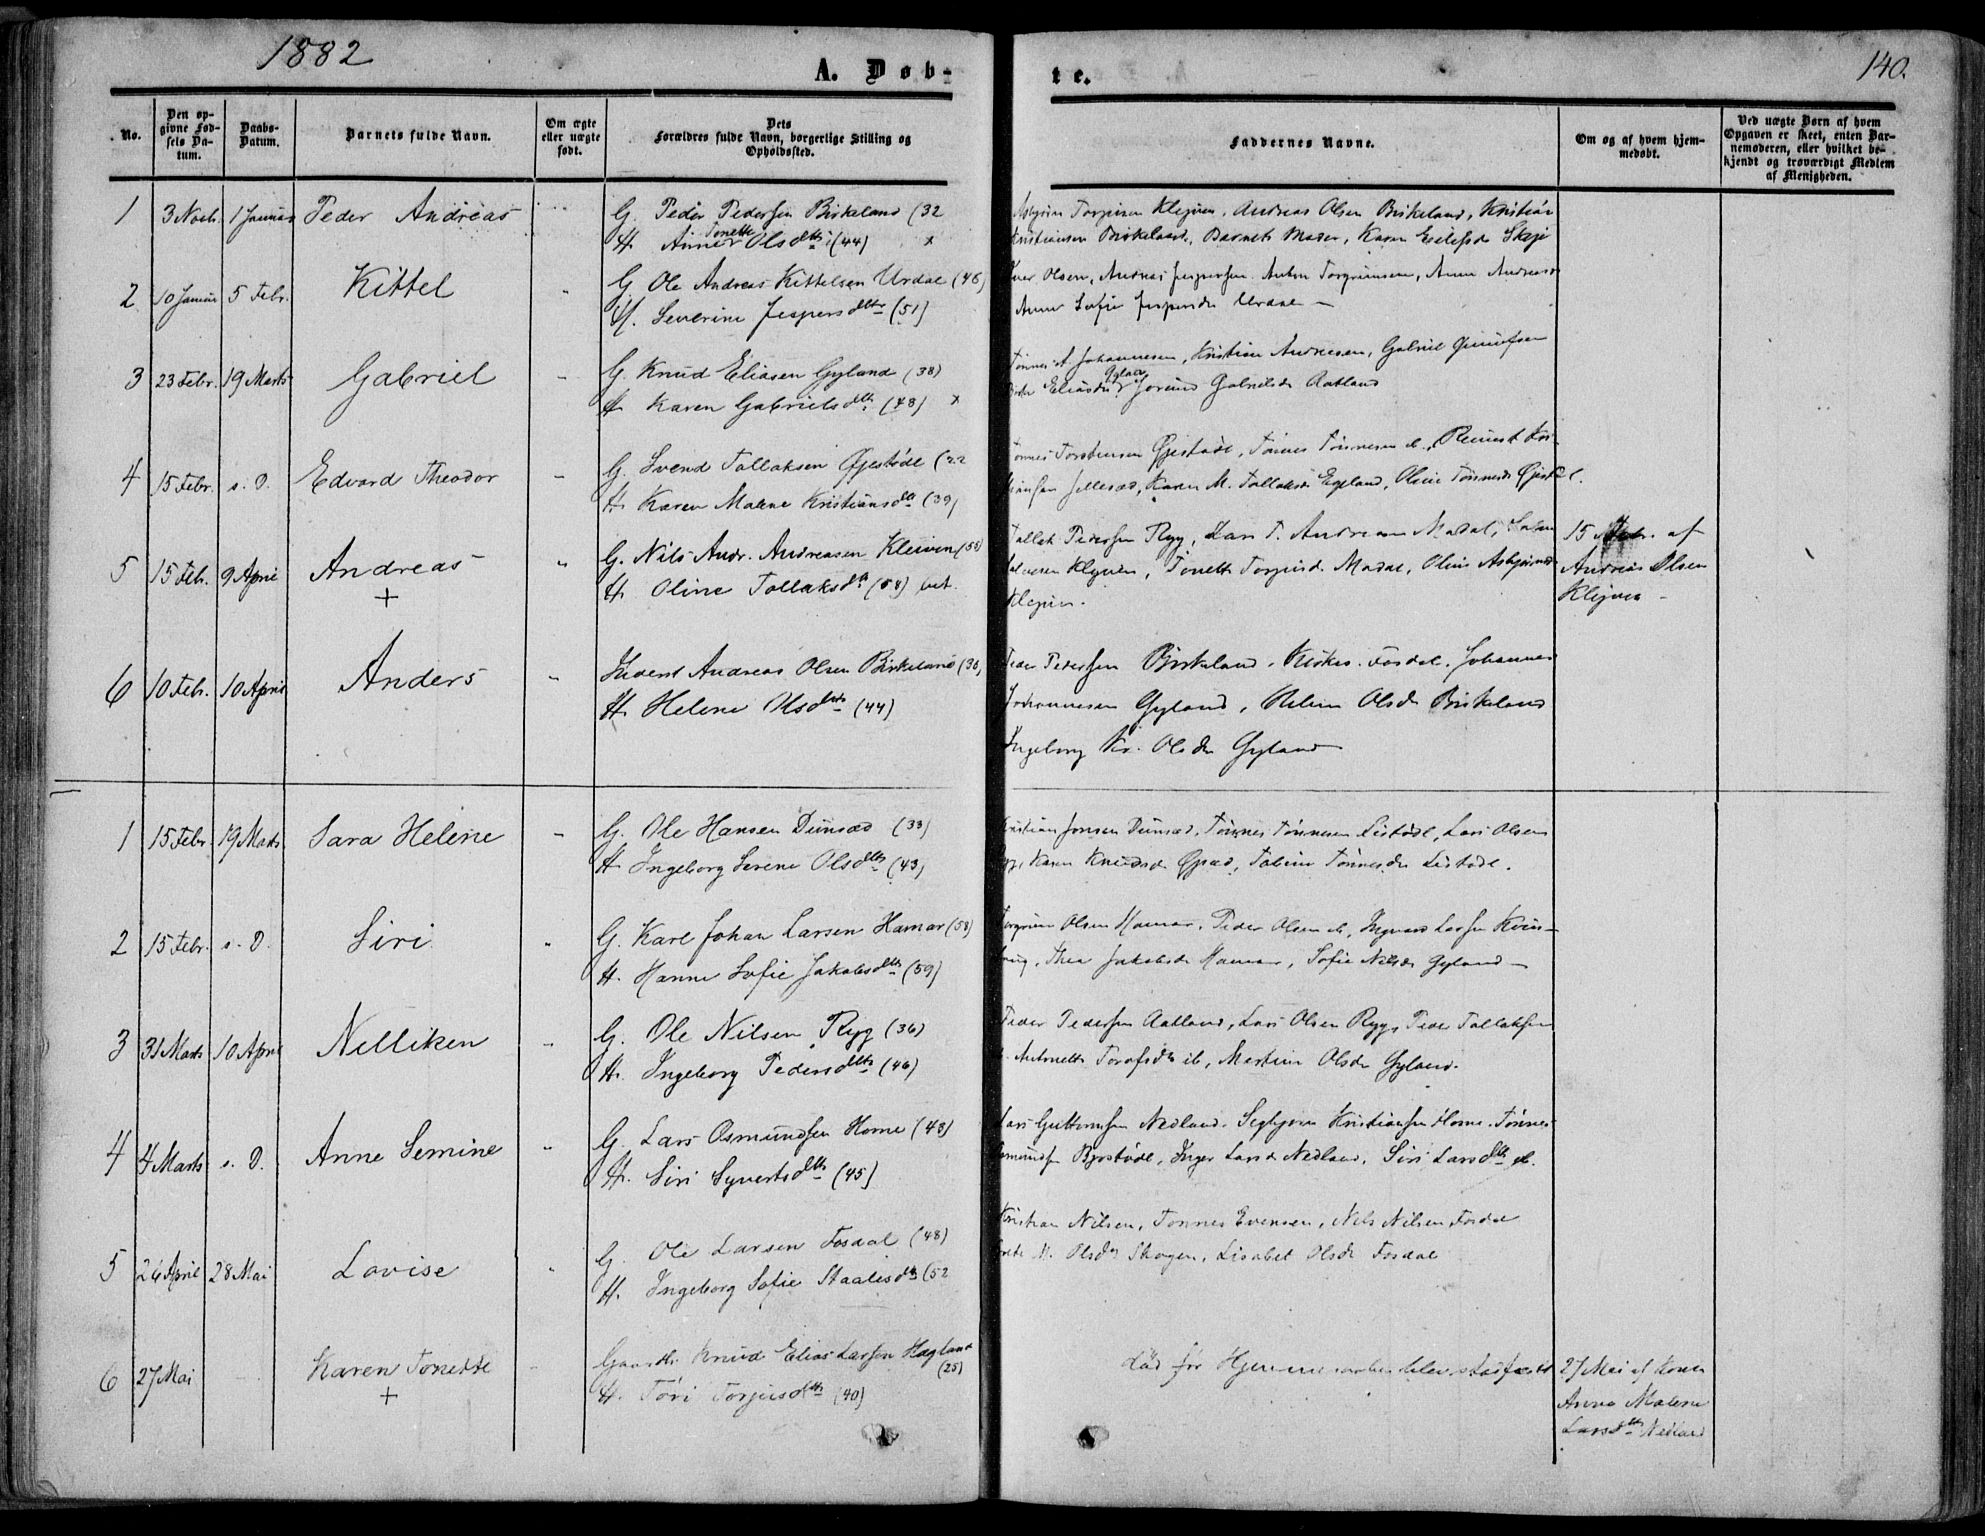 1882
A. Døb-
te.
140.
No.
Den opgivne Fødsels Datum.
Daabs-Datum.
Barnets fulde Navn.
Om ægte eller uægte født.
Dets Forældres fulde Navn, borgerlige Stilling og Opholdssted.
Faddernes Navne.
Om og af hvem hjemmedøbt.
Ved uægte Børn af hvem Opgaven er skeet, enten Barnemoderen, eller hvilket bekjendt og troværdigt Medlem af Menigheden.
1 3 Novb. 1 Januar Peder Andreas G. Peder Pedersen Birkeland (32
H. Anne Tonette Olsdtr (44) x
Torgiersen Klejven, Andreas Olsen Birkeland, Kristian
Kristiansen Birkeland, Barnets Moder, Karen
2 10 Januar 5 Febr. Kittel " G. Ole Andreas Kittelsen Urdal (46)
H. Severine Jespersdtr (51)
Olsen, Andreas Jespersen, Anton Torgrimsen, Anne Andreasd
Anne Sofie Jespersdr Urdal –
3 23 Febr. 19 Marts Gabriel – G. Knud Eliasen Gyland (38)
H. Karen Gabrielsdtr (48) x
Tønnes A Johannesen, Kristian Andresen, Gabriel
Eliasdr Gyland, Gabrielsdr Aatland
4 15 Febr. s. D. Edvard Theodor – G. Svend Tollaksen Øjestødl (22
H. Karen Malene Kristiansdtr (39)
Tønnes Torstensen Øjestødl, Tønnes Tønnesen ib.,
Karen M. Tollaksdr Egeland, Oline Tønnesdr Øjestøl.
5 15 Febr. 9 April Andreas " G. Nils Andr. Andreasen Kleiven (55)
+
H. Oline Tollaksdtr (58)
Tollak Pedersen Ryg, Lars T. Madal,
Klejven, Tonette Torgiersd. Madal, Oline Asbjørnsdr
Klejven.
15 Febr. af
Andreas Olsen
Klejven –
6 10 Febr. 10 April Anders " Andreas Olsen Birkeland (36)
H. Helene Olsdtr (44)
Peder Pedersen Birkeland, Fosdal, Johannes
Johannesen Gyland, Helene Olsdr Birkeland
Ingeborg Kr. Olsdr Gyland
1 15 Febr 19 Marts Sara Helene – G. Ole Hansen Dunsæd (33)
H. Ingeborg Serene Olsdtr (43)
Kristian Jonsen Dunsæd, Tønnes Tønnesen Listødl, Lars Olsen
Karen Knudsdr, Tønnesdr Listødl.
2 15 Febr. s. D. Siri " G. Karl Johan Larsen Hamar (58)
H. Hanne Sofie Jakobsdtr (59)
Torgrim Olsen Hamar, Peder Olsen ib, Ingvard Larsen
Thea Jakobsdr Hamar, Sofie Nilsdr Gyland –
3 31 Marts 10 April Nelliken " G. Ole Nilsen Ryg (36)
H. Ingeborg Pedersdtr (46)
Peder Pedersen Aatland, Lars Olsen Ryg, Peder Tollaksen
Antonette ib, Martine Olsdr Gyland.
4 4 Marts s. D. Anne Semine " G. Lars Osmundsen Home (48)
H. Siri Syvertsdtr (45)
Lars Guttormsen Nedland, Kristiansen Home, Tønnes
Osmundsen, Inger Larsd. Nedland, Siri Larsdtr ib.
5 26 April 28 Mai Lovise " G. Ole Larsen Fosdal (48)
H. Ingeborg Sofie Staalesdtr (52
Kristian Nilsen, Tønnes Evensen, Nels Nilsen Fosdal
M. Olsdr Skogen, Lisabet Olsdr Fosdal
6 27 Mai Karen Tonette – Gaardbr. Knud Elias Larsen Hagland (25)
+
H. Tøri Torjusdtr (40)
død før Hjemmedaaben blev stadfæstet
27 Mai af Konen
Anne Malene
Larsdtr Nedland